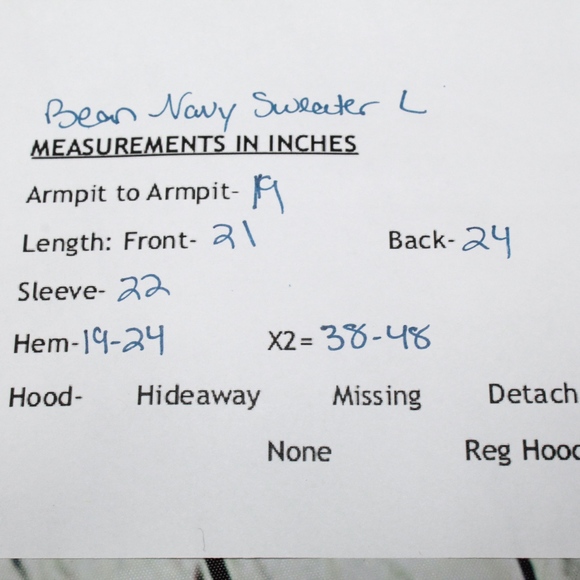 Bean Navy Sweater L
MEASUREMENTS IN INCHES
Armpit to Armpit- 19
Length: Front- 21 Back- 24
Sleeve- 22
Hem- 19-24 X2= 38-48
Hood- Hideaway Missing Detach
None Reg Hood